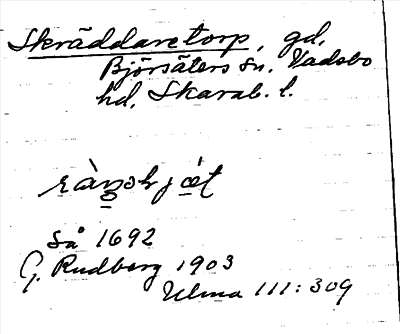 Skräddaretorp, gd,
Björsäters sn. Vadsbo
hd, Skarab. l.
Så 1692
G. Rudberg 1903
Ulma 111:309